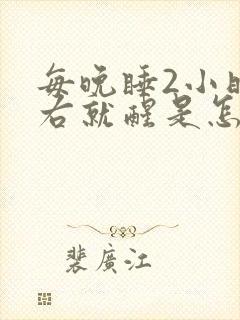 每晚睡2小时
右就醒是怎
裴廣江